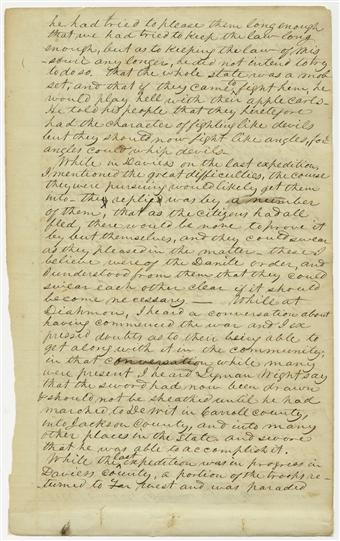 he had tried to please them long enough
that we had tried to keep the law long
enough, but as to keeping the law of Mis-
souri any longer, he did not intend to try
to do so. That the whole state was a mob
set, and that if they came to fight him, he
would play hell with their apple carts
He told his people that they heretofore
had the character of fighting like devils
but they should now fight like angles, for
angles could whip devils.
While in Daviess on the last expedition,
I mentioned the great difficulties, the course
they were pursuing would likely get them
into– they replied was by a number
of them, that as the citizens had all
fled, there would be none to prove it
by but themselves, and they could swear
as they pleased in the matter– these I
believe were of the Danite order, and
I understood from them that they could
swear each other clear if it should
become necessary — While at
Diahmon, I heard a conversation about
having commenced the war and I ex
pressed doubts as to their being able to
get along with it in the community,
in that conversation, while many
were present I heard Lyman Wight say
that the sword had now been drawn
& should not be sheathed until he had
marched to De Wit in Carroll County,
into Jackson County, and into many
other places in the State and swore
that he was able to accomplish it.
While the last expedition was in progress in
Daviess County, a portion of the troops re-
turned to Far West and was paraded